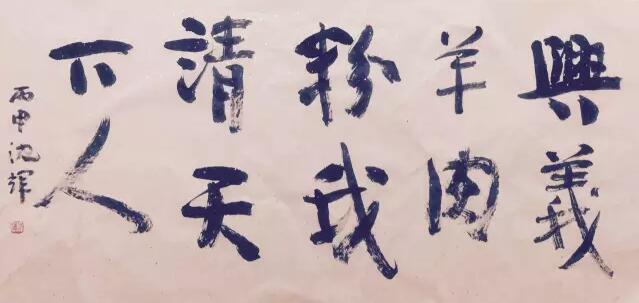 興義
羊肉
粉我
請天
下人
丙申沈輝